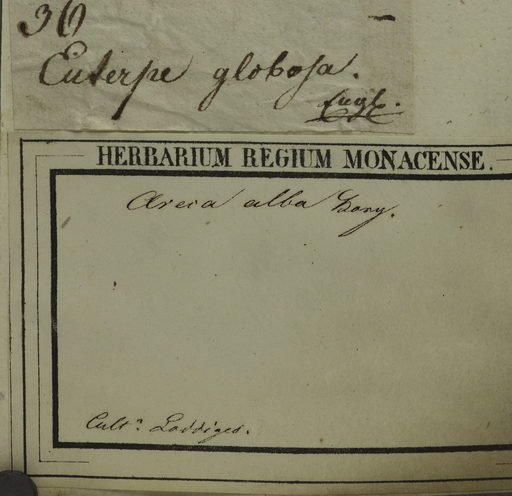 30
Euterpe globosa.
HERBARIUM REGIUM MONACENSE.
Areca alba Bory.
Cult. Loddiges.